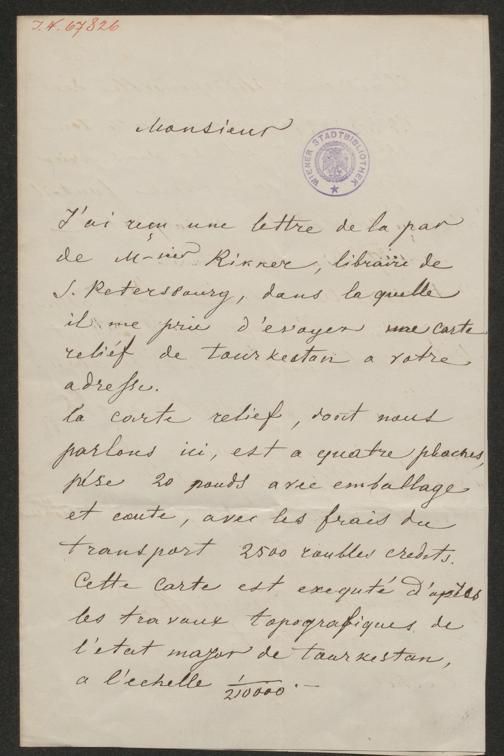 J.N. 67826
Monsieur
WIENER STADTBIBLIOTHEK
J'ai reçu une lettre de la par
de M-sieur Rikker, libraire de
S. Petersbourg, dans laquelle
il me prie d'evoyer une carte
reliéf de tourkestan a votre
adresse.
la carte relief, dont nous
parlons ici, est a quatre plaches,
pése 20 pouds avec emballage
et coute, avec les frais du
transport 2500 roubles credits.
Cette carte est executé d'aprés
les travaux topografiques de
l'état major de tourkestan,
a l'echelle 1/210000.—